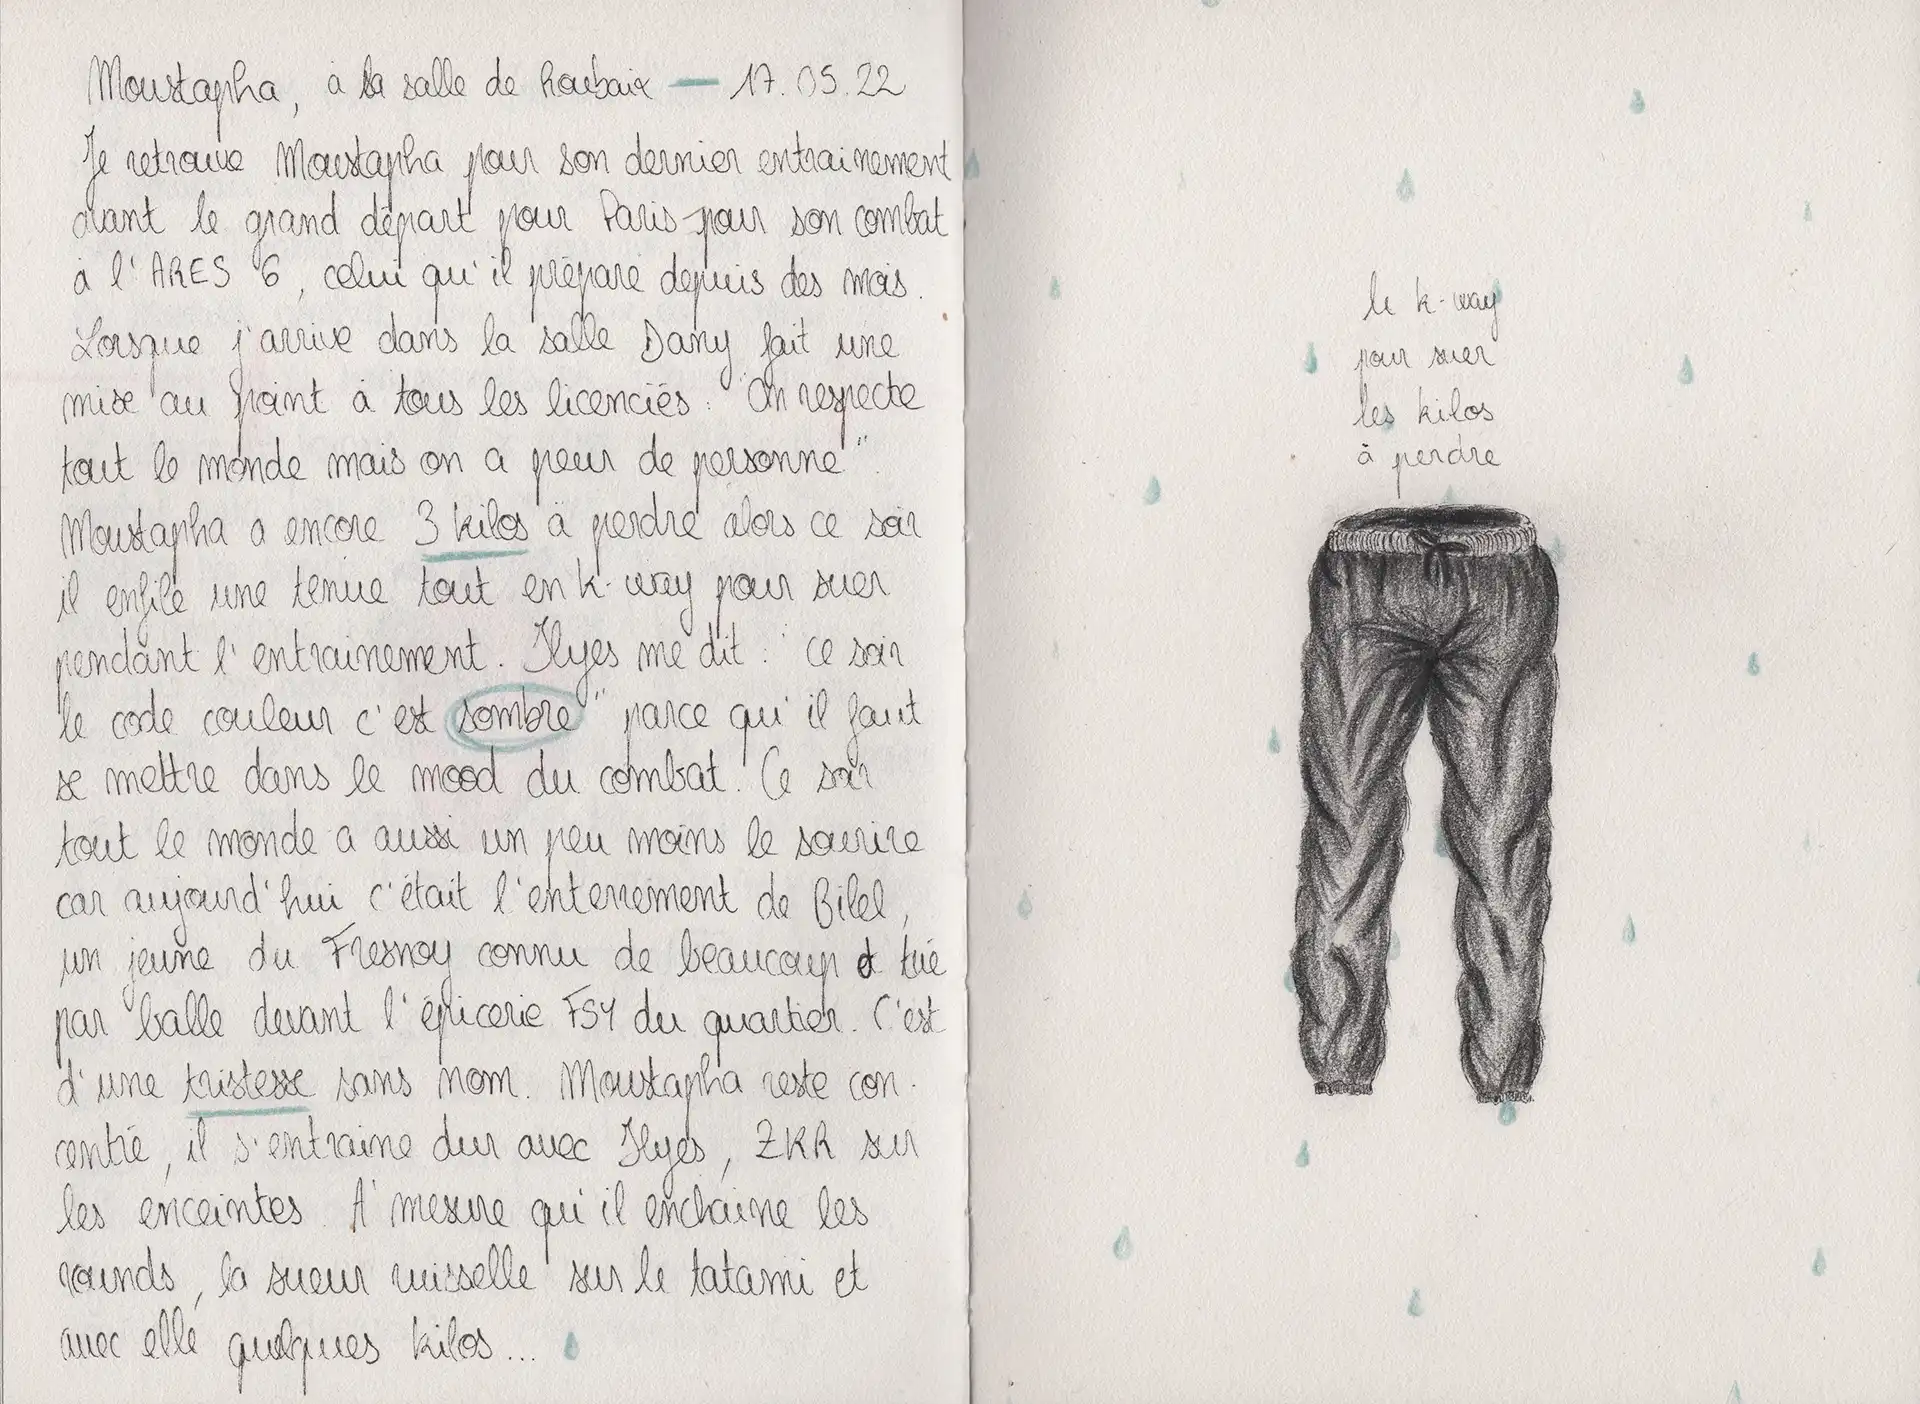 Moustapha, à la salle de Roubaix — 17.05.22
Je retrouve Moustapha pour son dernier entrainement
avant le grand départ pour Paris pour son combat
à l'ARES 6, celui qu'il prépare depuis des mois.
Lorsque j'arrive dans la salle Dany fait une
mise au point à tous les licenciés : "On respecte
tout le monde mais on a peur de personne".
Moustapha a encore 3 kilos à perdre alors ce soir
il enfile une tenue tout en k-way pour suer
pendant l'entrainement. Ilyes me dit : "ce soir
le code couleur c'est sombre" parce qu'il faut
se mettre dans le mood du combat. Ce soir
tout le monde a aussi un peu moins le sourire
car aujourd'hui c'était l'enterrement de Bilel,
un jeune du Fresnoy connu de beaucoup et tué
par balle devant l'épicerie FSY du quartier. C'est
d'une tristesse sans nom. Moustapha reste con-
centré, il s'entraine dur avec Ilyes, ZKR sur
les enceintes. A mesure qu'il enchaine les
rounds, la sueur ruisselle sur le tatami et
avec elle quelques kilos...
le k-way
pour suer
les kilos
à perdre